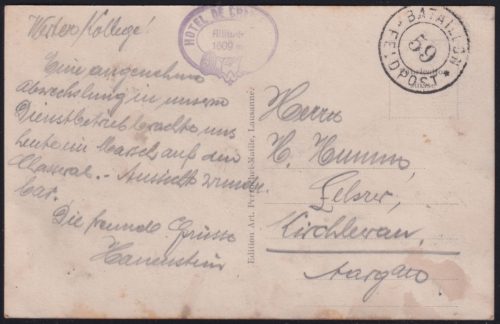 Werter Kollege!
Eine angenehme
Abwechslung in unserm
Dienstbetrieb brachte uns
heute ein Marsch auf den
Chasseral. - Aussicht wunder-
bar.
Die freundl. Grüsse
Hauenstein
HOTEL DE CHASSERAL
Altitude
1609 m.
Edition Art. Perrochet-Matile, Lausanne.
BATAILLON
59
FELDPOST
Herrn
H.
Lehrer,
Kirchleerau,
Aargau